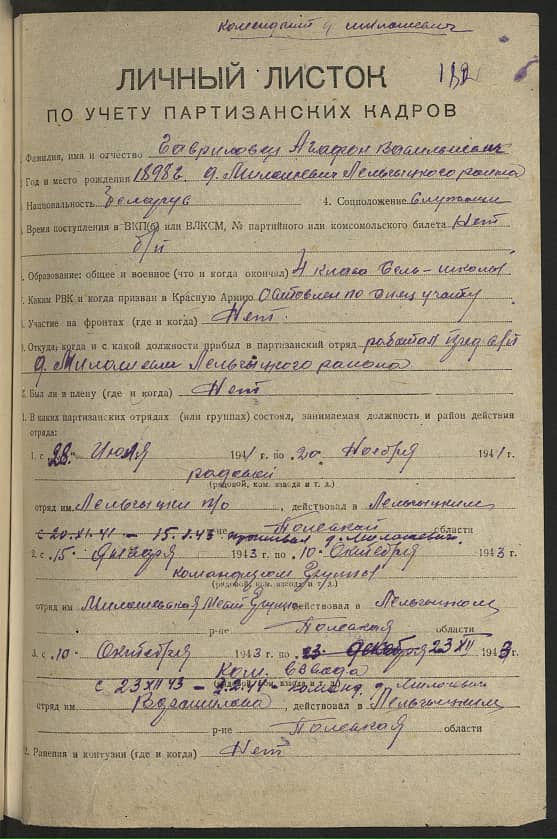 Комендант д Милошевич
ЛИЧНЫЙ ЛИСТОК
ПО УЧЕТУ ПАРТИЗАНСКИХ КАДРОВ
Фамилия, имя и отчество Гавриловец Агафон Васильевич
Год и место рождения 1898 г. д. Милошевич Лельчицкого района
Национальность Беларус 4. Соцположение Служащий
Время поступления в ВКП(б) или ВЛКСМ, № партийного или комсомольского билета Нет
б/п
Образование: общее и военное (что и когда окончал) 4 класа Сель-школы
Каким РВК и когда призван в Красную Армию Оставлен по спец учету
Участие на фронтах (где и когда) Нет.
Откуда, когда и с какой должности прибыл в партизанский отряд работал
д. Милошевичи Лельчицкого района
Был ли в плену (где и когда) Нет
В каких партизанских отрядах (или группах) состоял, занимаемая должность и район действия
отряда:
1. с „28" Июля 1941 г. по 20 Ноября 1941 г.
рядовой
(рядовой, ком. взвода и т. д.)
отряд им. Лельчицки п/о, действовал в Лельчицким
р-не Полецкай области
с 20.XI.41 – 15.1.43 проживал д. Милошевич.
2. с „15" Января 1943 г. по „10" Октебря 1943 г.
командиром Групы
(рядовой, ком. взвода и т. д.)
отряд им Милошевская действовал в Лельчицком
р-не Полецкая области
3. с „10" Октебря 1943 г. по 23 Декабря 23 XII 1943 г.
Ком. взвода
с 23 XII 43 – д Милошевич
отряд им Ворашилова, действовал в Лельчицким
р-не Полецкая области
2. Ранения и контузии (где и когда) Нет